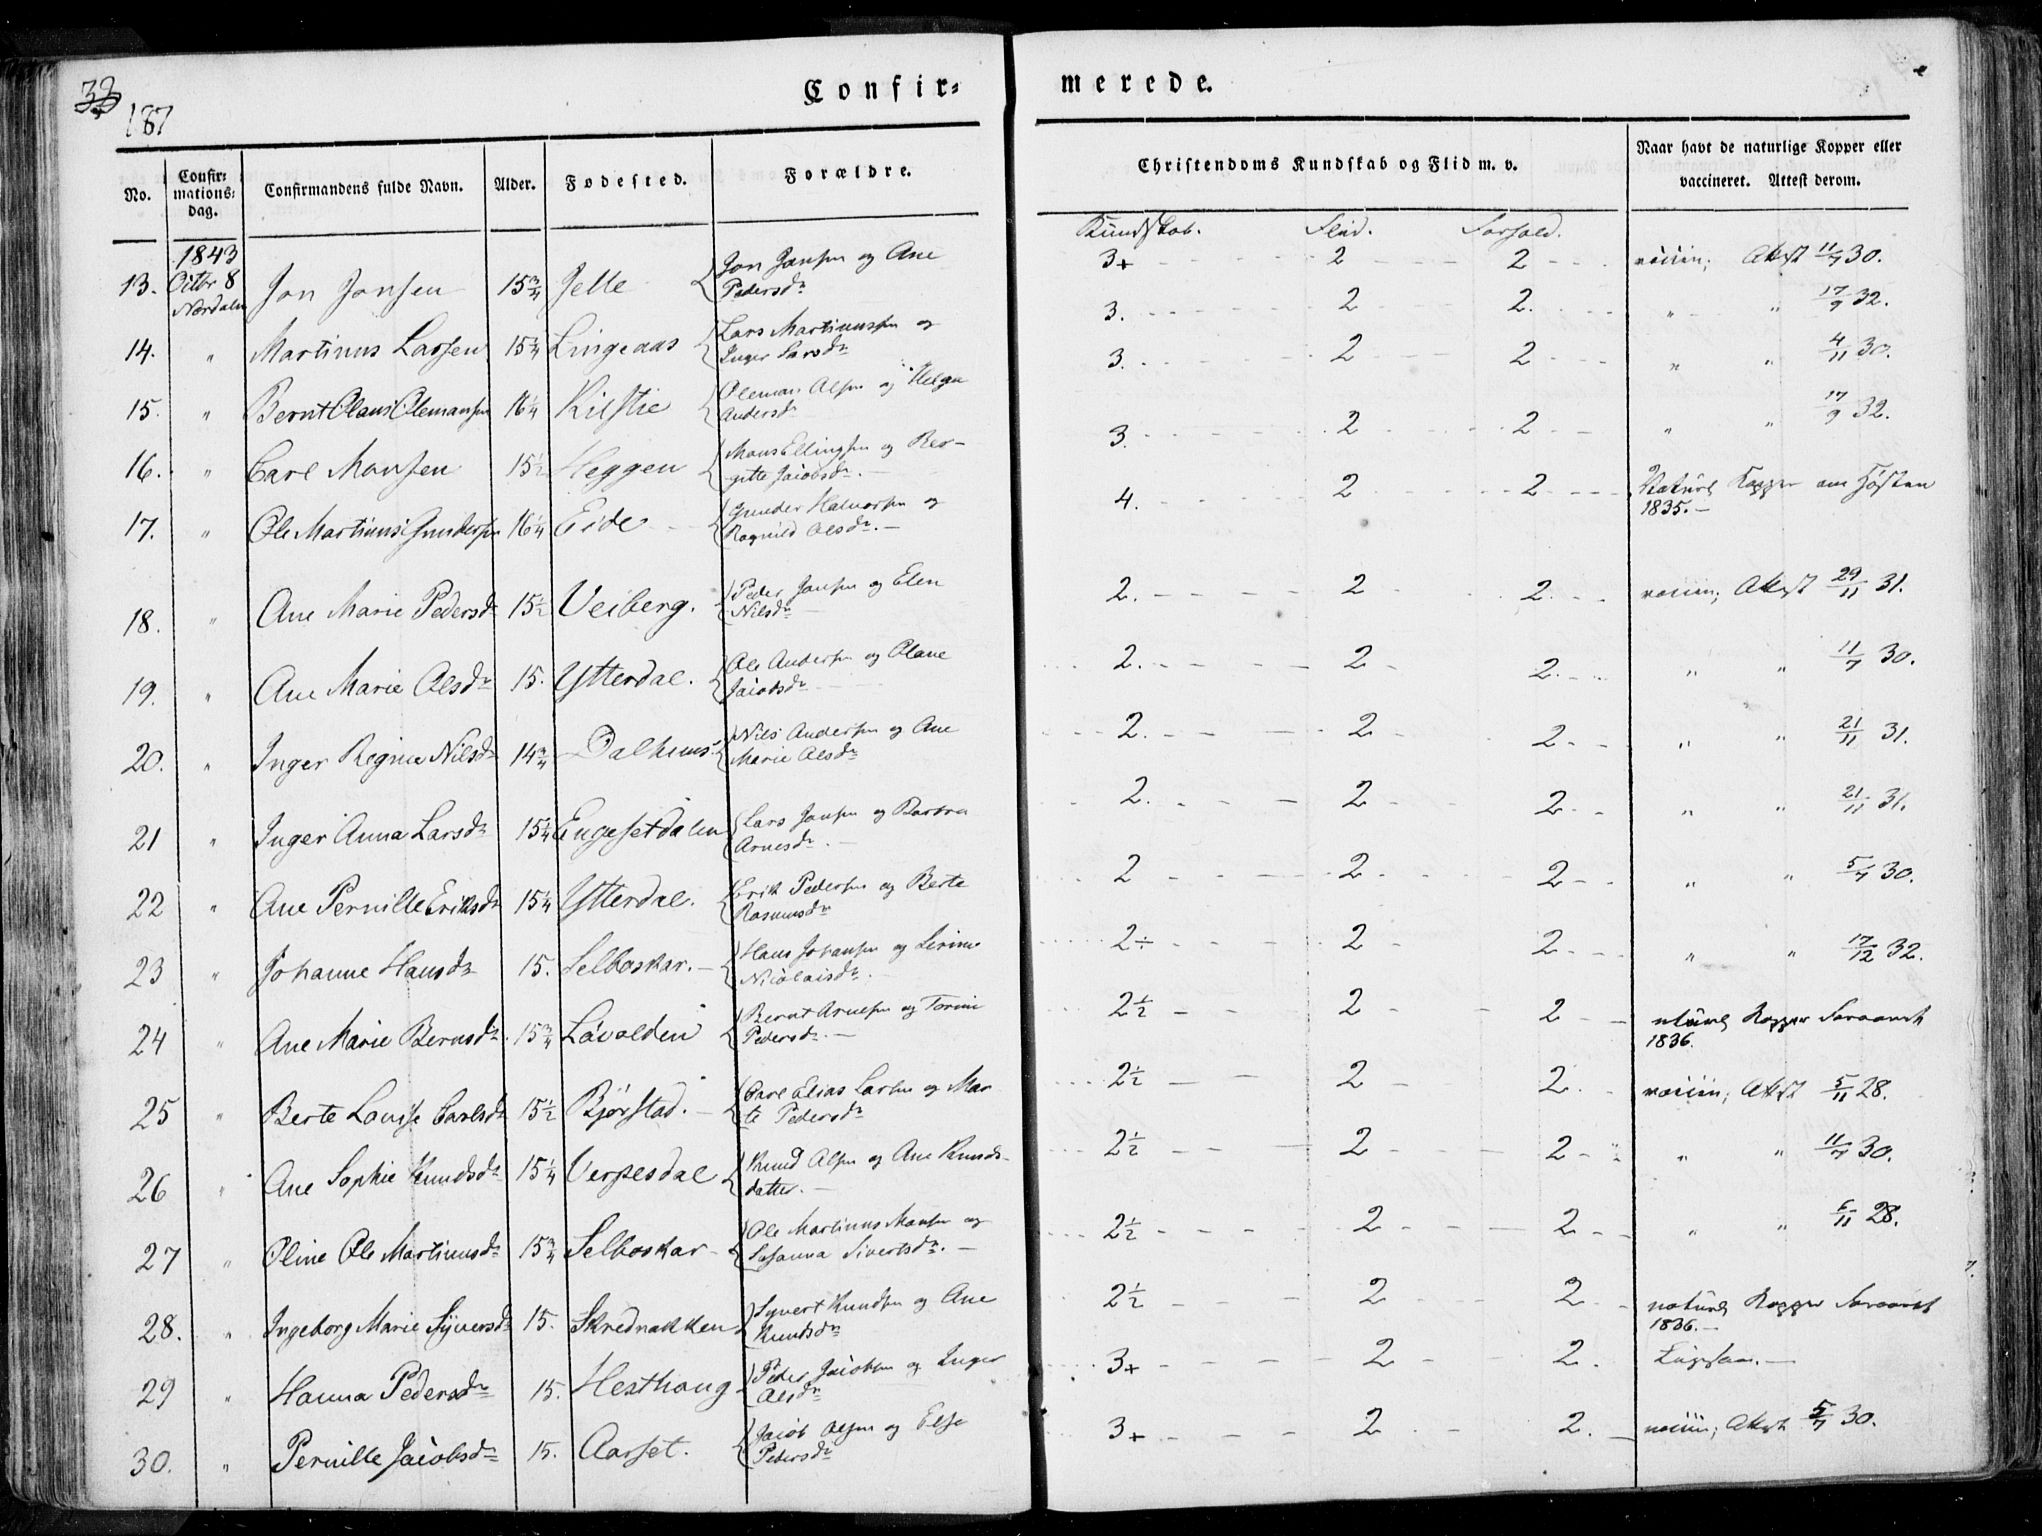 33
187
Confir= merede.
No. Confir=mations=dag. Confirmandens fulde Navn. Alder. Fødested. Forældre. Christendoms Kundskab og Flid m. v. Naar havt de naturlige Kopper eller vaccineret. Attest derom.
Kundskab. Flid. Forhold.
1843
13. Octbr 8 Nordalen Jon Jonsen 15 3/4 Jelle Jon Jonsen og Ane Pedersdr 3+ 2 2 vaccin; Attest 11/7 30.
14. " Martinus Larsen 15 1/4 Lingeaas Lars Martinussen og Inger Larsdr 3. 2 2. " " 17/9 32.
15. " Bernt Olaus Olemansen 16 1/4 Kilstie Oleman Olsen og Helga Andersdr 3. 2 2 " " 4/11 30.
16. " Carl Monsen 15 1/2 Heggen Mons Ellingsen og Bergitte Jacobsdr. 3. 2 2 " " 17/9 32.
17. " Ole Martinus Gundersen 16 1/4 Eide Gunder Halvorsen og Ragnild Olsdr. 4. 2 2 Naturl Kopper om Høsten 1835.
18. " Ane Marie Pedersdr 15 1/2 Veiberg. Peder Jonsen og Elen Nilsdr 2. 2 2. vaccin; Attest 29/11 31.
19. " Ane Marie Olsdr 15. Ytterdal. Ole Andersen og Olane Jacobsdr 2. 2 2. " " 11/7 30.
20. " Inger Regine Nilsdr 14 3/4 Dalhuus Nils Andersen og Ane Marie Olsdr 2. 2 2 " " 21/11 31.
21 " Inger Anna Larsdr 15 1/4 Engesetdalen Lars Jonsen og Barbra Arnesdr. 2. 2 2 " " 21/11 31.
22 " Ane Pernille Eriksdr 15 1/4 Ytterdal. Erik Pedersen og Berte Rasmusdr 2 2 2 " " 5/7 30.
23 " Johanne Hansdr 15. Selboskar. Hans Johansen og Sirine Nicolaisdr. 2÷ 2 2 " " 17/12 32.
24 " Ane Marie Bernsdr. 15 3/4 Løvolden Bernt Arnesen og Torine Pedersdr. 2 1/2 2 2 naturl Kopper Foraaret 1836.
25 " Berte Louise Carlsdr 15 1/2 Bjørstad. Carl Elias Larsen og Marte Pedersdr 2 1/2 2 2. vaccin; Attest 5/11 28.
26 " Ane Sophie Knudsdr 15 1/4 Verpesdal Knud Olsen og Ane Knudsdatter. 2 1/2 2 2 " " 11/7 30.
27 " Oline Ole Martinusdr 15 3/4 Selboskar Ole Martinus Monsen og Susanna Sivertsdr. 2 1/2 2 2 " " 6/11 28.
28. " Ingeborg Marie Syversdr 15. Skrednakken Syvert Knudsen og Ane Knudsdr 2 1/2 2 2 naturl Kopper Foraaret 1836.
29 " Hanna Pedersdr 15. Hesthaug Peder Jacobsen og Inger Olsdr 3+ 2 2. Ligesaa.
30. " Pernille Jacobsdr 15. Aarset. Jacob Olsen og Else Pedersdr 3+ 2 2. vaccin; Attest 5/7 30.